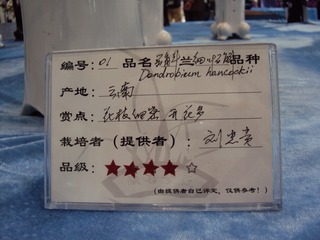 编号: 01 品名 兰 细叶石斛 品种
Dendrobium hancockii
产地: 云南
赏点: 花枝细密 开花多
栽培者(提供者): 刘忠贵
品级: ★★★★☆
(由提供者自己评定, 仅供参考!)